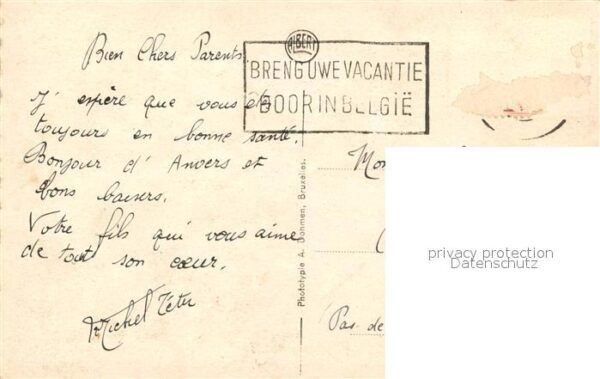 Bien Chers Parents.
J'espère que vous êtes
toujours en bonne santé.
Bonjour d'Anvers et
bons baisers.
Votre fils qui vous aime
de tout son cœur.
Michel
ALBERT
BRENG UW E VACANTIE
DOOR IN BELGIË
Phototypie A. Dohmen, Bruxelles.
Mon
Pas-de
privacy protection
Datenschutz